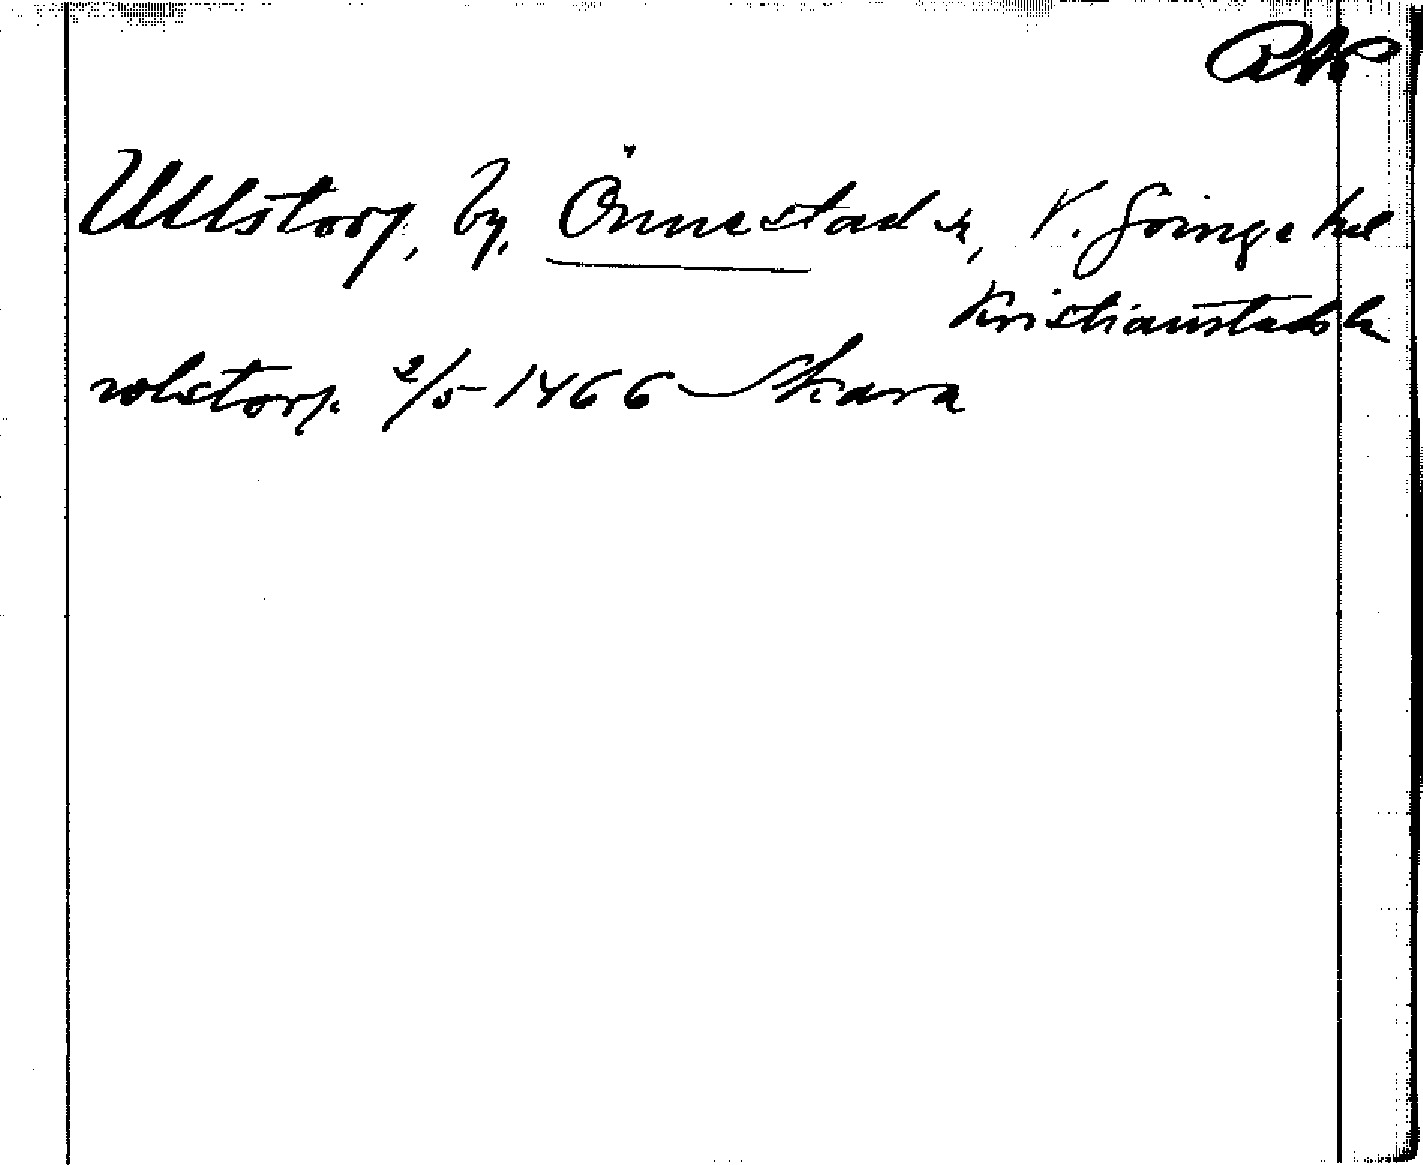 RAP
Ullstorp, by, Önnestad sn, V. Göinge hd
Kristianstads ln
wlstorp. 2/5 1466 Skara